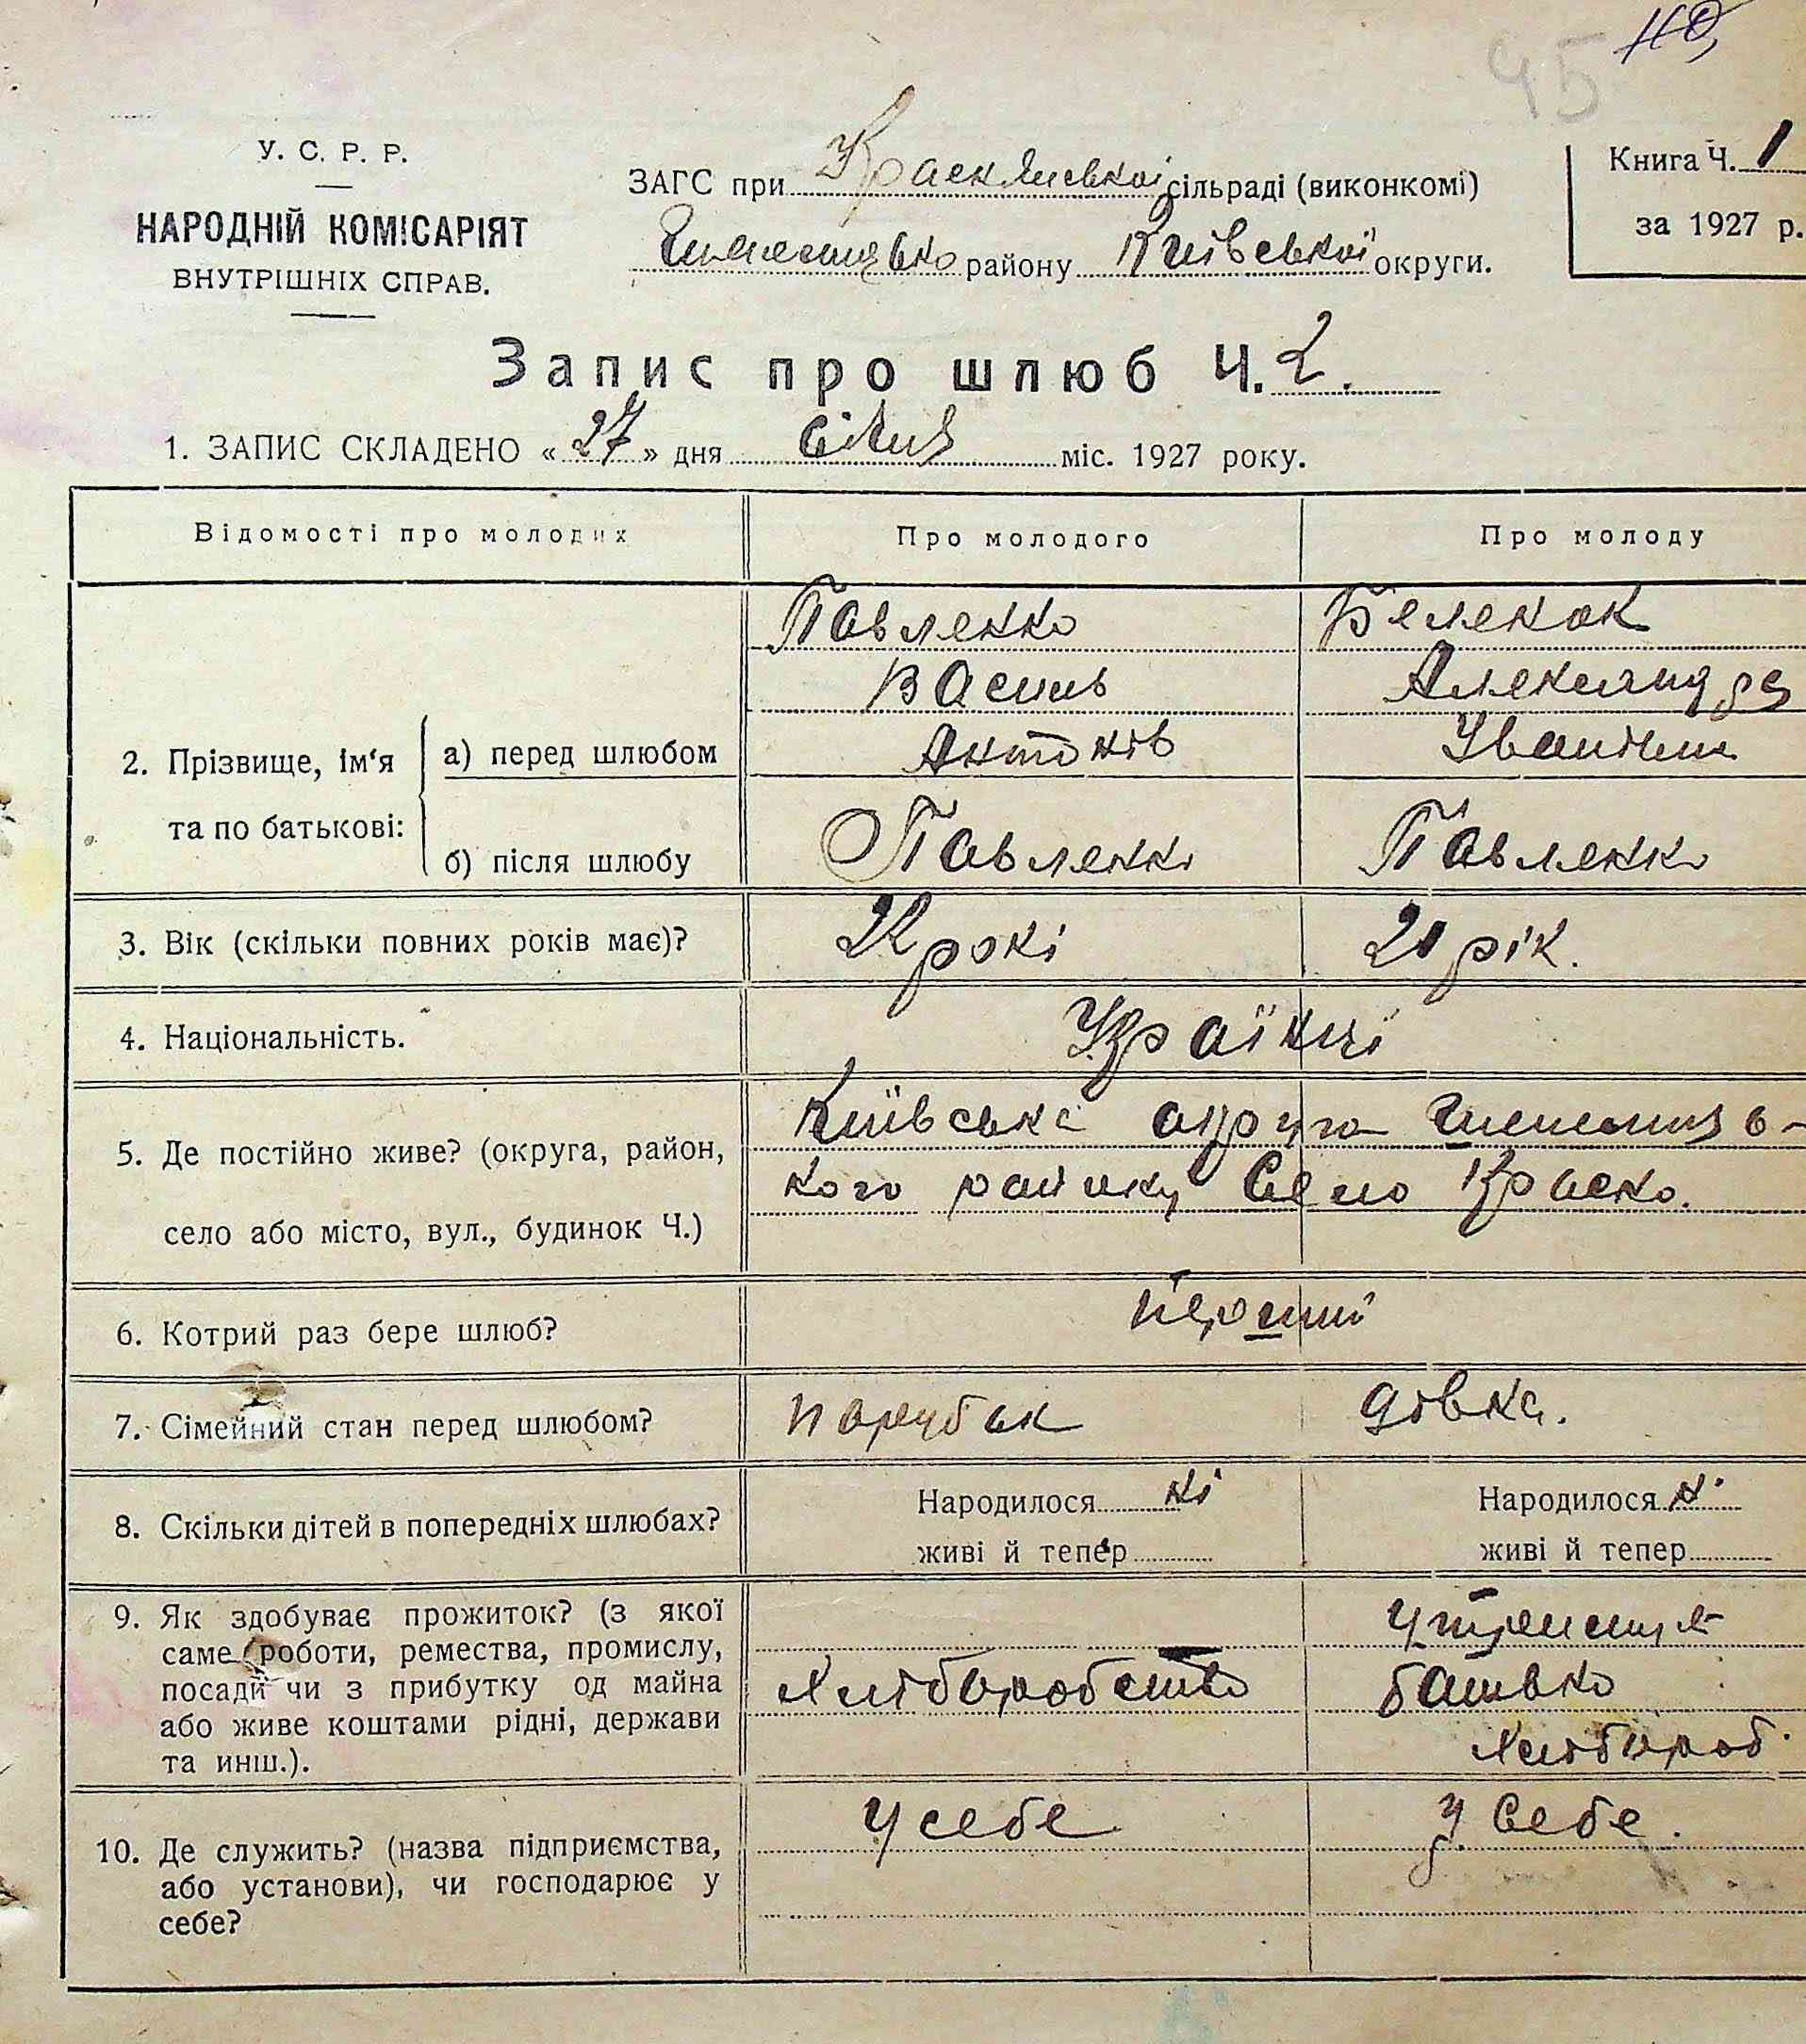 45
У. С. Р. Р.
НАРОДНІЙ КОМІСАРІЯТ
ВНУТРІШНІХ СПРАВ.
ЗАГС при Краснлиської сільраді (виконкомі)
району Київської округи.
Книга Ч. 1
за 1927 р.
Запис про шлюб Ч. 2.
1. ЗАПИС СКЛАДЕНО « 27 » дня Січня міс. 1927 року.
Відомості про молодих
Про молодого
Про молоду
2. Прізвище, ім'я та по батькові:
а) перед шлюбом
Павленко
Василь
Антонів
Беленок
Александра
Іванівна
б) після шлюбу
Павленко
Павленко
3. Вік (скільки повних років має)?
22 рокі
21 рік.
4. Національність.
Країнці
5. Де постійно живе? (округа, район,
село або місто, вул., будинок Ч.)
Київська округа
кого району Село
6. Котрий раз бере шлюб?
перший
7. Сімейний стан перед шлюбом?
парубок
дівка.
8. Скільки дітей в попередніх шлюбах?
Народилося ні
живі й тепер
Народилося ні
живі й тепер
9. Як здобуває прожиток? (з якої
саме роботи, ремества, промислу,
посади чи з прибутку од майна
або живе коштами рідні, держави
та инш.).
Хліборобство
батько
Хлібороб.
10. Де служить? (назва підприємства,
або установи), чи господарює у
себе?
У себе
У себе.